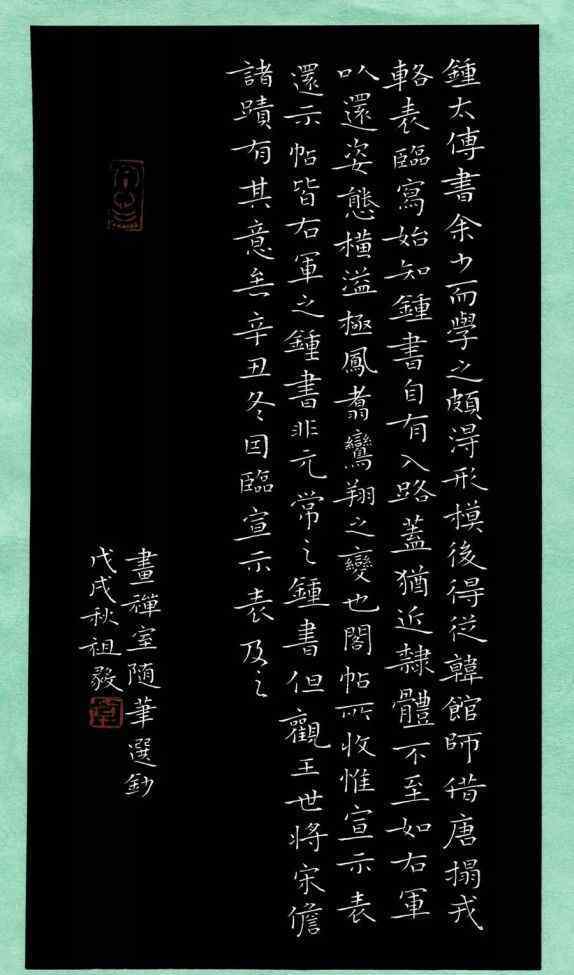 鍾太傅書余少而學之頗淂形模後得従韓館師借唐搨戎
輅表臨寫始知鍾書自有入路蓋猶近隷體不至如右軍
㕥還姿態橫溢極鳳翥鸞翔之變也閣帖所收惟宣示表
還示帖皆右軍之鍾書非元常之鍾書但觀王世將宋儋
諸蹟有其意矣辛丑冬因臨宣示表及之
畫禪室随筆選鈔
戊戌秋祖毅